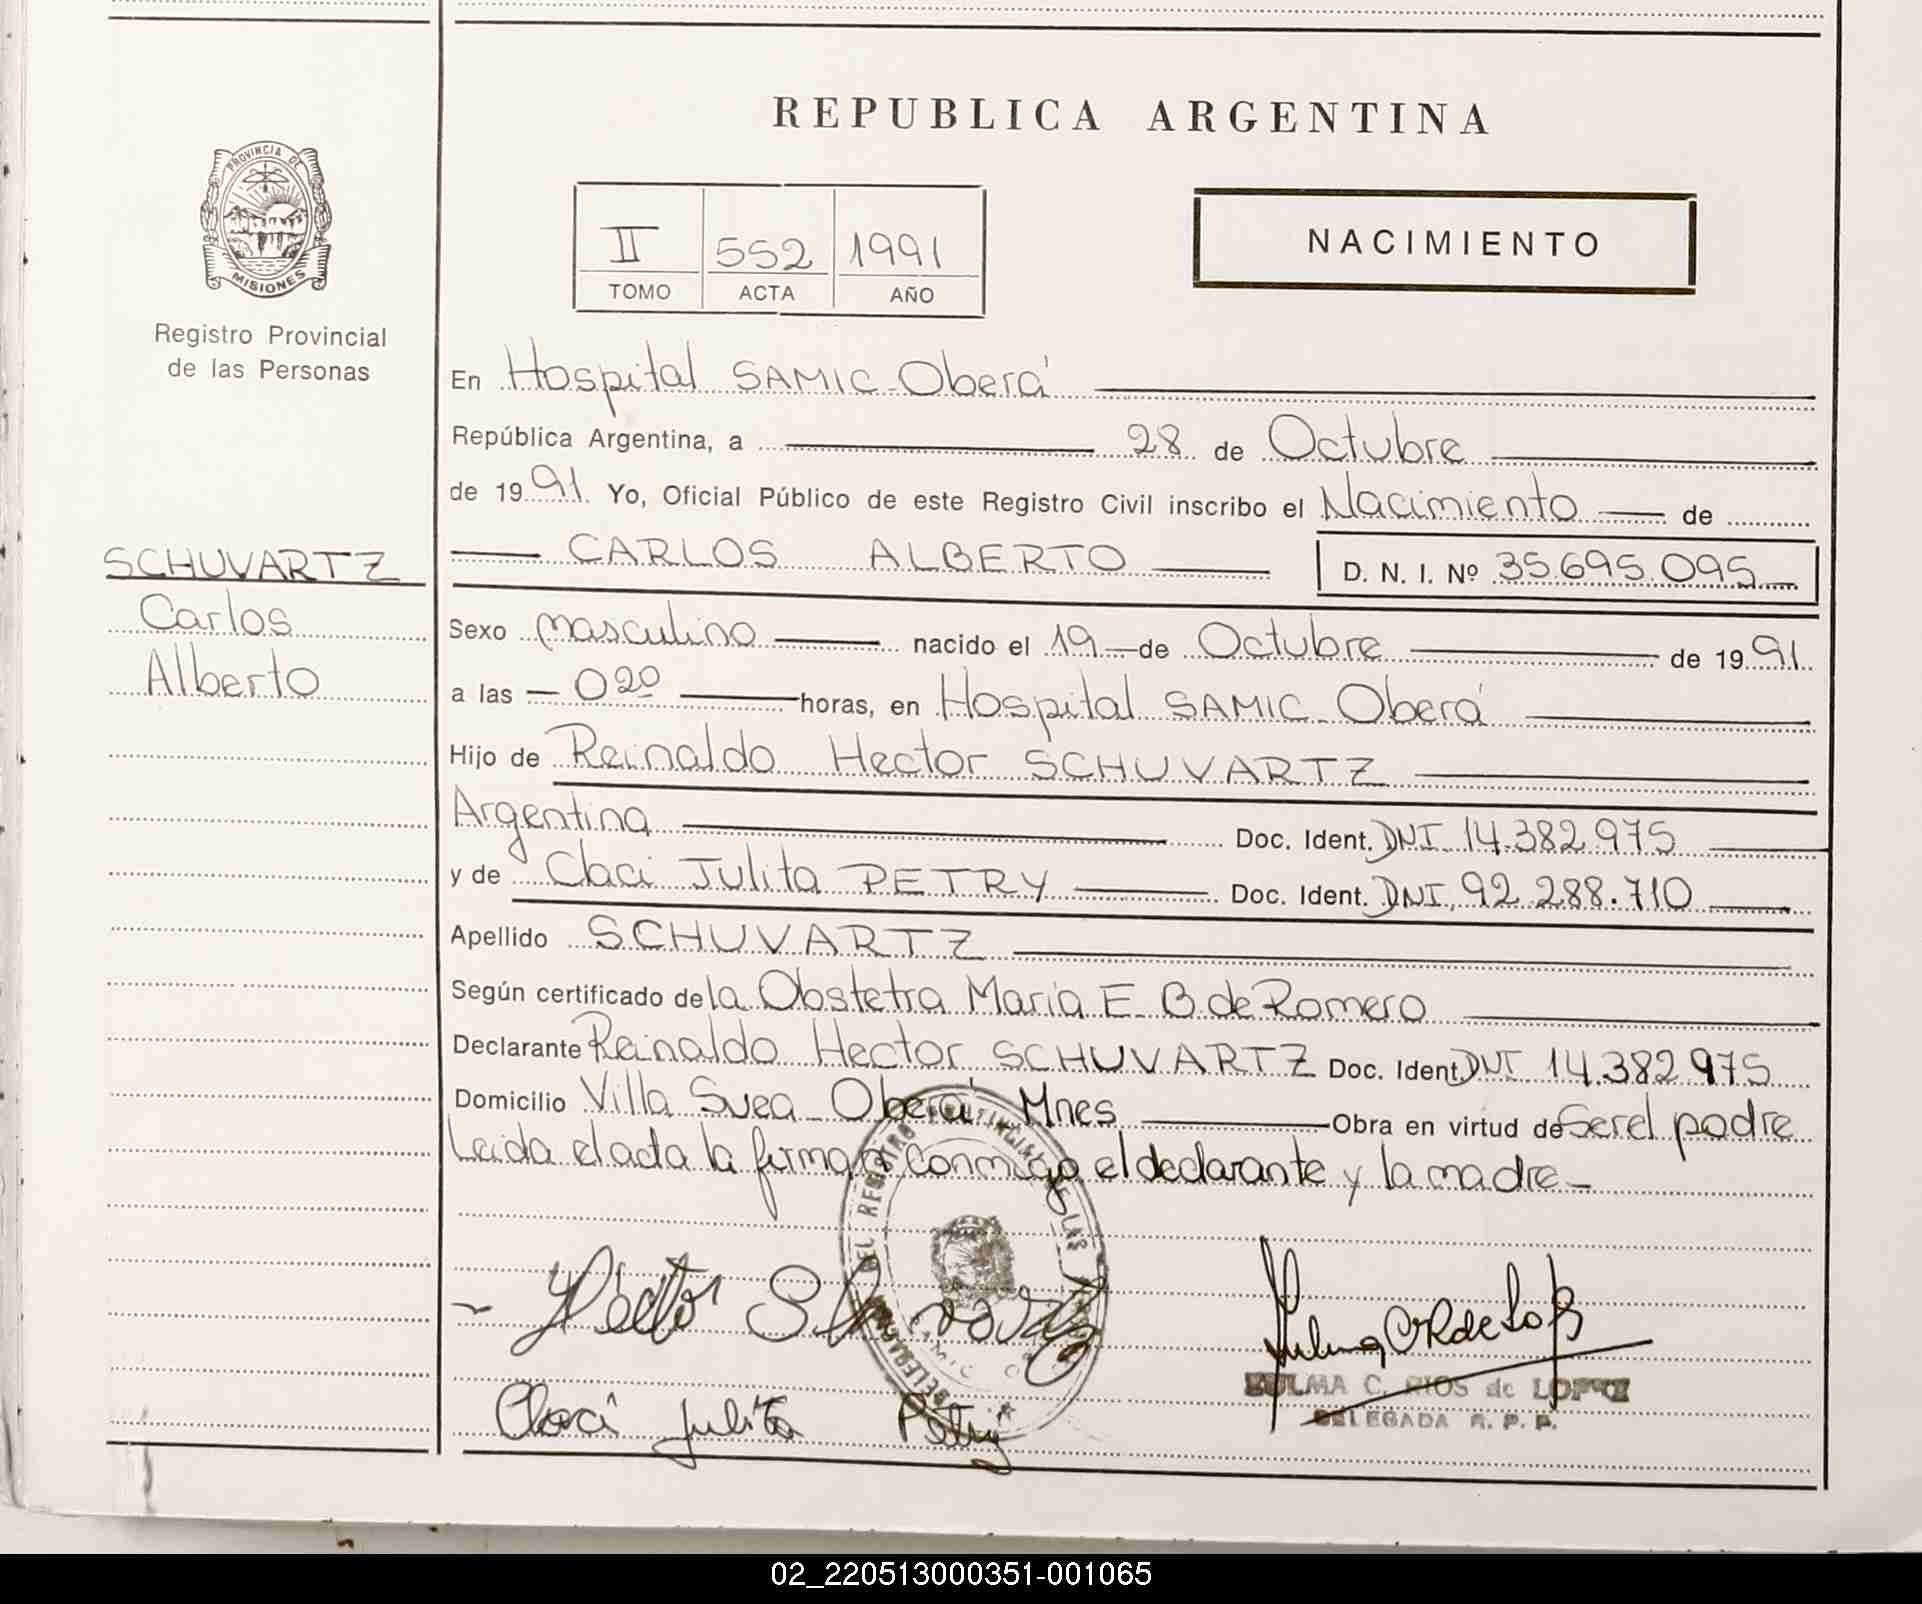 REPUBLICA ARGENTINA
PROVINCIA DE
MISIONES
Registro Provincial
de las Personas
II 552 1991
TOMO ACTA AÑO
NACIMIENTO
En Hospital SAMIC Oberá
República Argentina, a 28 de Octubre
de 1991. Yo, Oficial Público de este Registro Civil inscribo el Nacimiento de
SCHUVARTZ
Carlos
Alberto
CARLOS ALBERTO D. N. I. Nº 35.695.095
Sexo masculino nacido el 19 de Octubre de 1991.
a las 0 20 horas, en Hospital SAMIC Oberá
Hijo de Reinaldo Hector SCHUVARTZ
Argentina Doc. Ident. DNI 14.382.975
y de Claci Julita PETRY Doc. Ident. DNI. 92.288.710
Apellido SCHUVARTZ
Según certificado de la Obstetra Maria E. B. de Romero
Declarante Reinaldo Hector SCHUVARTZ Doc. Ident DNI 14.382.975
Domicilio Villa Svea - Oberá, Mnes Obra en virtud de Ser el padre
Leida el acta la firman conmigo el declarante y la madre.-
Hector
Claci Julita Petry
ZULMA C. RIOS de LOPEZ
DELEGADA R. P. P.
02_220513000351-001065